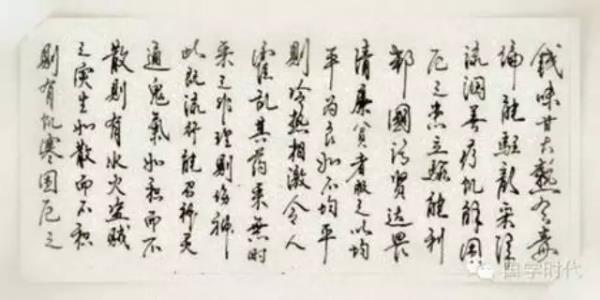 錢味甘大熱有毒
偏能駐顏采澤
流潤善療飢解困
厄之患立驗能利
邦國污賢達畏
清廉貪者服之以均
平為良如不均平
則冷熱相激令人
霍亂其药采無時
采之非理則傷神
此既流行能召神灵
通鬼氣如积而不
散則有水火盗賊
之灾生如散而不积
則有飢寒困厄之
国学时代